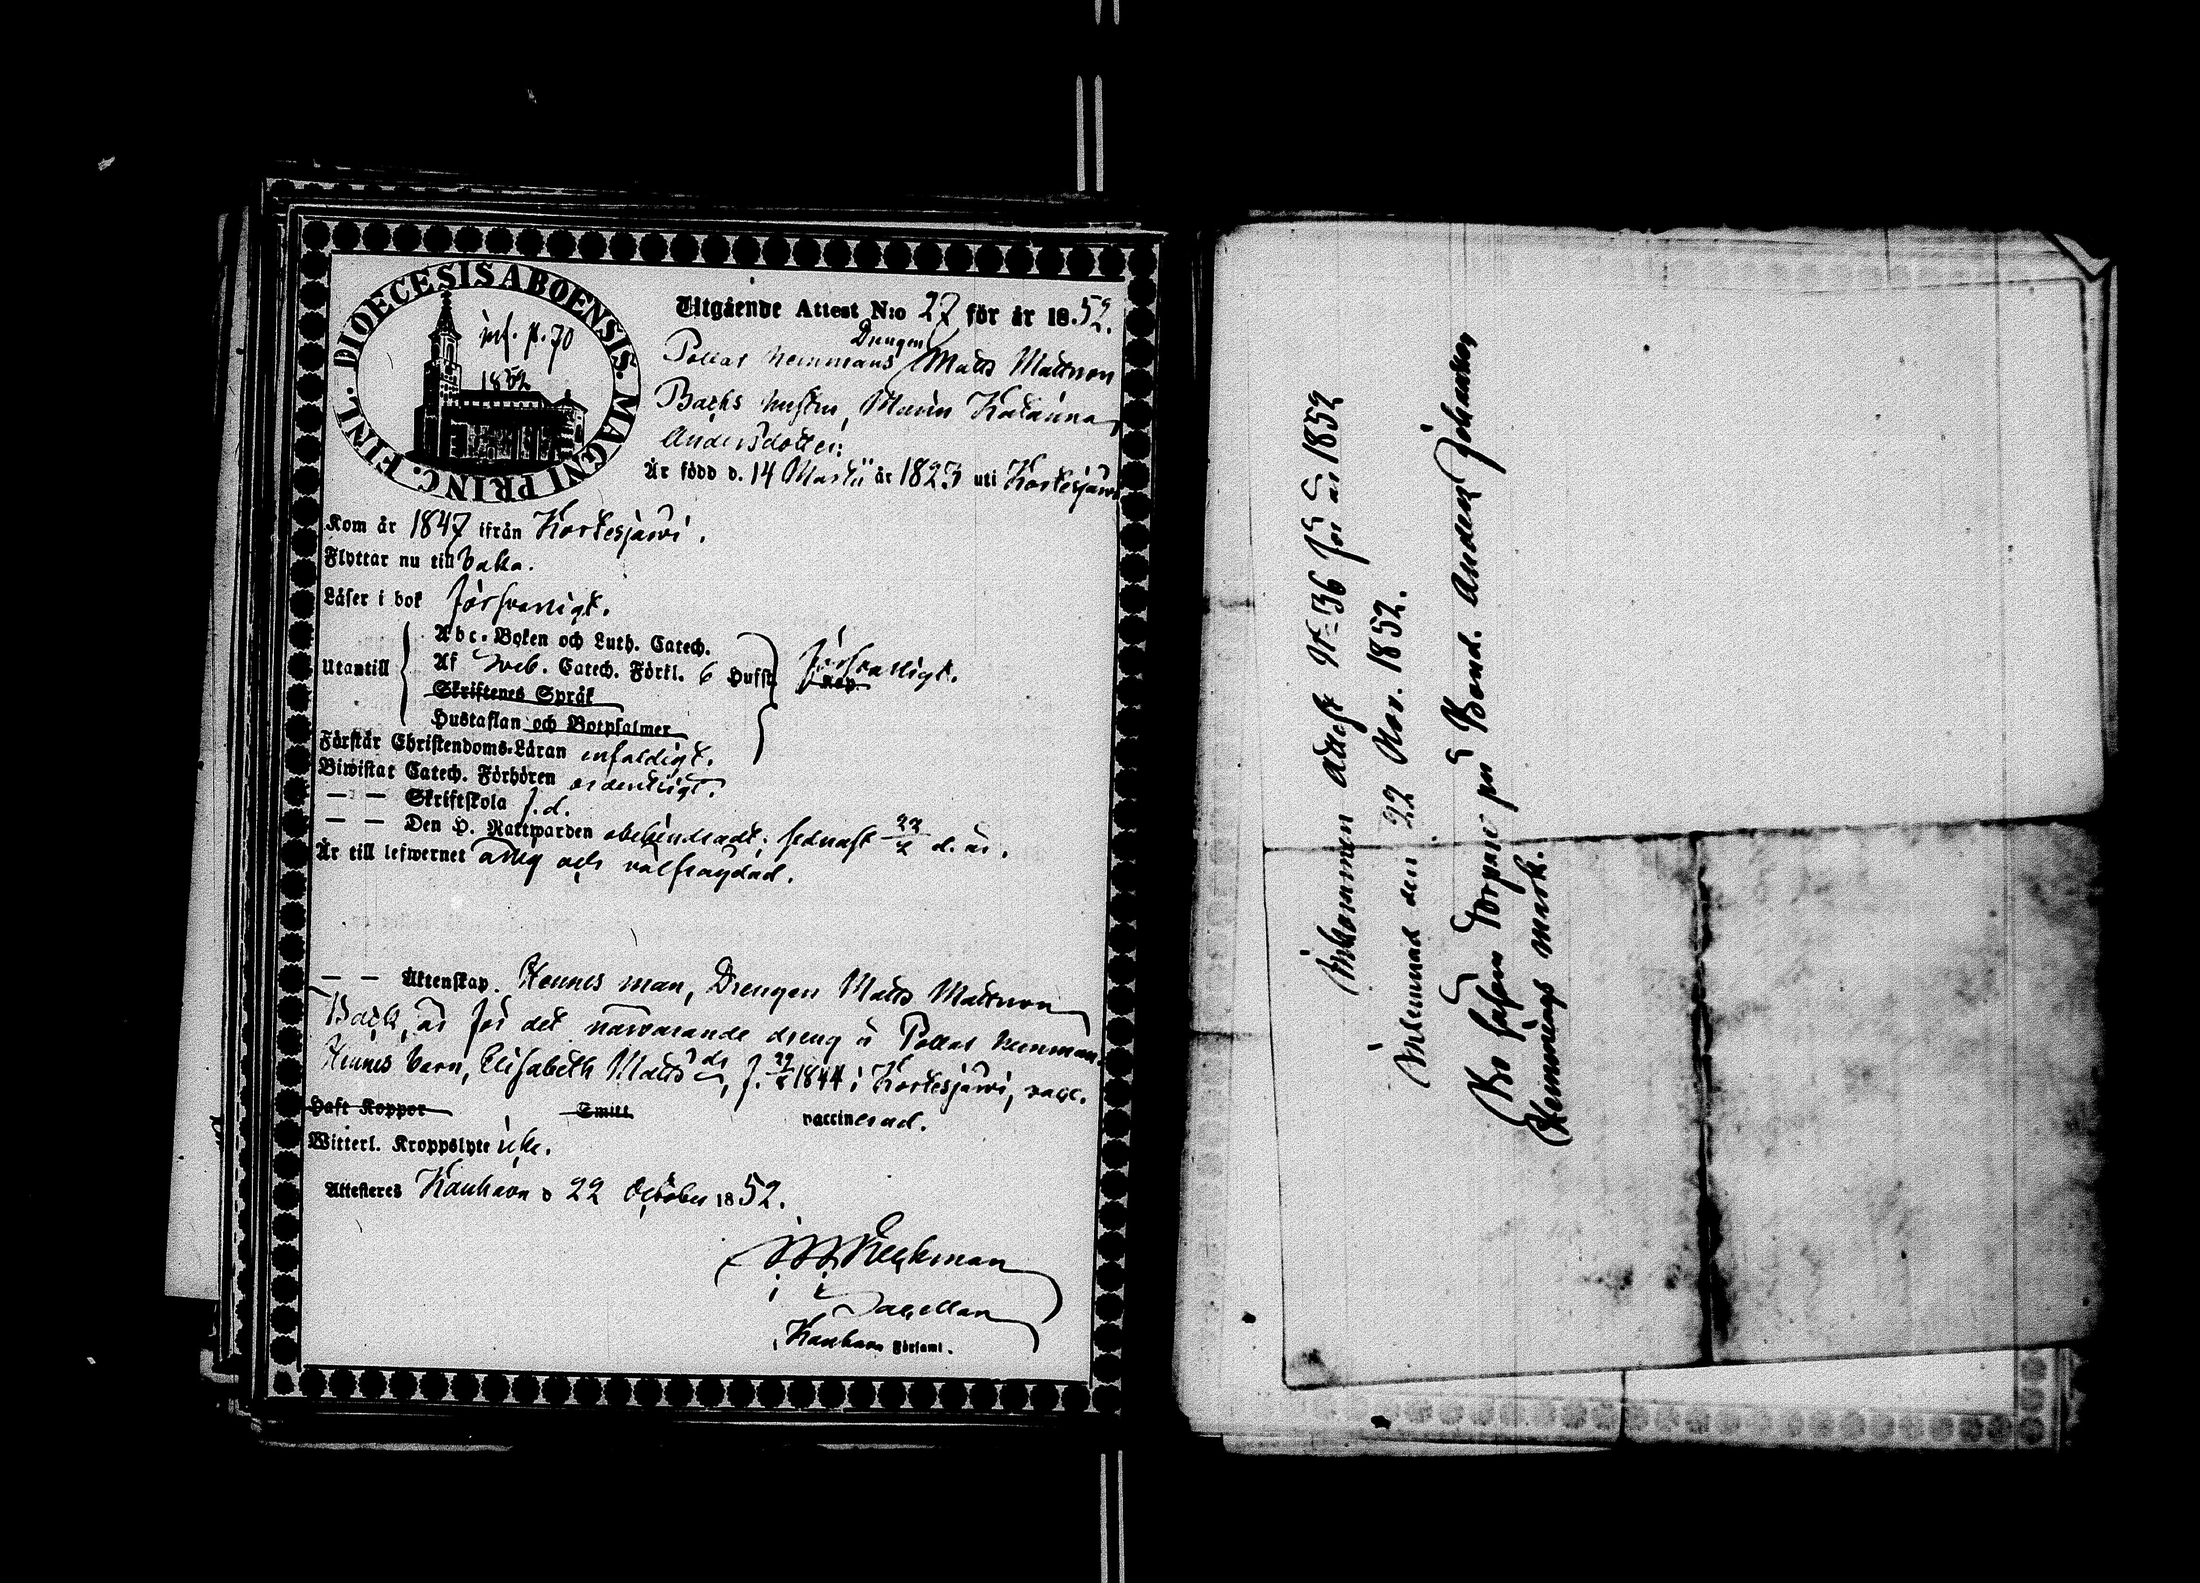 DIOECESIS ABOENSIS. MAGNI PRINC. FINL.
inf. p. 70
1852
Utgående Attest N:o 27 för år 1852.
Drengen
Pollar hemmans Matts Mattsson
Backs hustru, Maria
Andersdotter
Är född d. 14 Martii år 1823 uti Kortesjärvi
Kom år 1847 ifrån Kortesjärvi.
Flyttar nu till
Läser i bok försvarligt.
Abc-Boken och Luth. Catech.
Utantill Af Sveb. Catech. Förkl. 6 Hufst. försvarligt.
Kap.
Skriftenes Språk
Hustaflan och Botpsalmer
Förstår Christendoms-Läran enfaldigt.
Biwistat Catech. Förhören ordentligt.
— — Skriftskola f. d.
— — Den H. Nattwarden obehindradt; sednast d. år.
Är till lefwernet ärlig och välfrägdad.
— — Äktenskap. Hennes man, Drengen Matts Mattsson
Back, är för det närvarande dreng å Pollar hemman.
Hennes barn, Elisabeth Matts dr, f. 1844 i Kortesjärvi, vacc.
Haft Koppor Smitt. vaccinerad.
Witterl. Kroppslyte icke.
Attesteres Kauhava d 22 October 1852.
Sacellan
Kauhava Församl.
Inkommen attest N:o 36 för år 1852
Inlemnad den 22 Nov. 1852.
Bond. Anders Johansson
Hemmings mark.